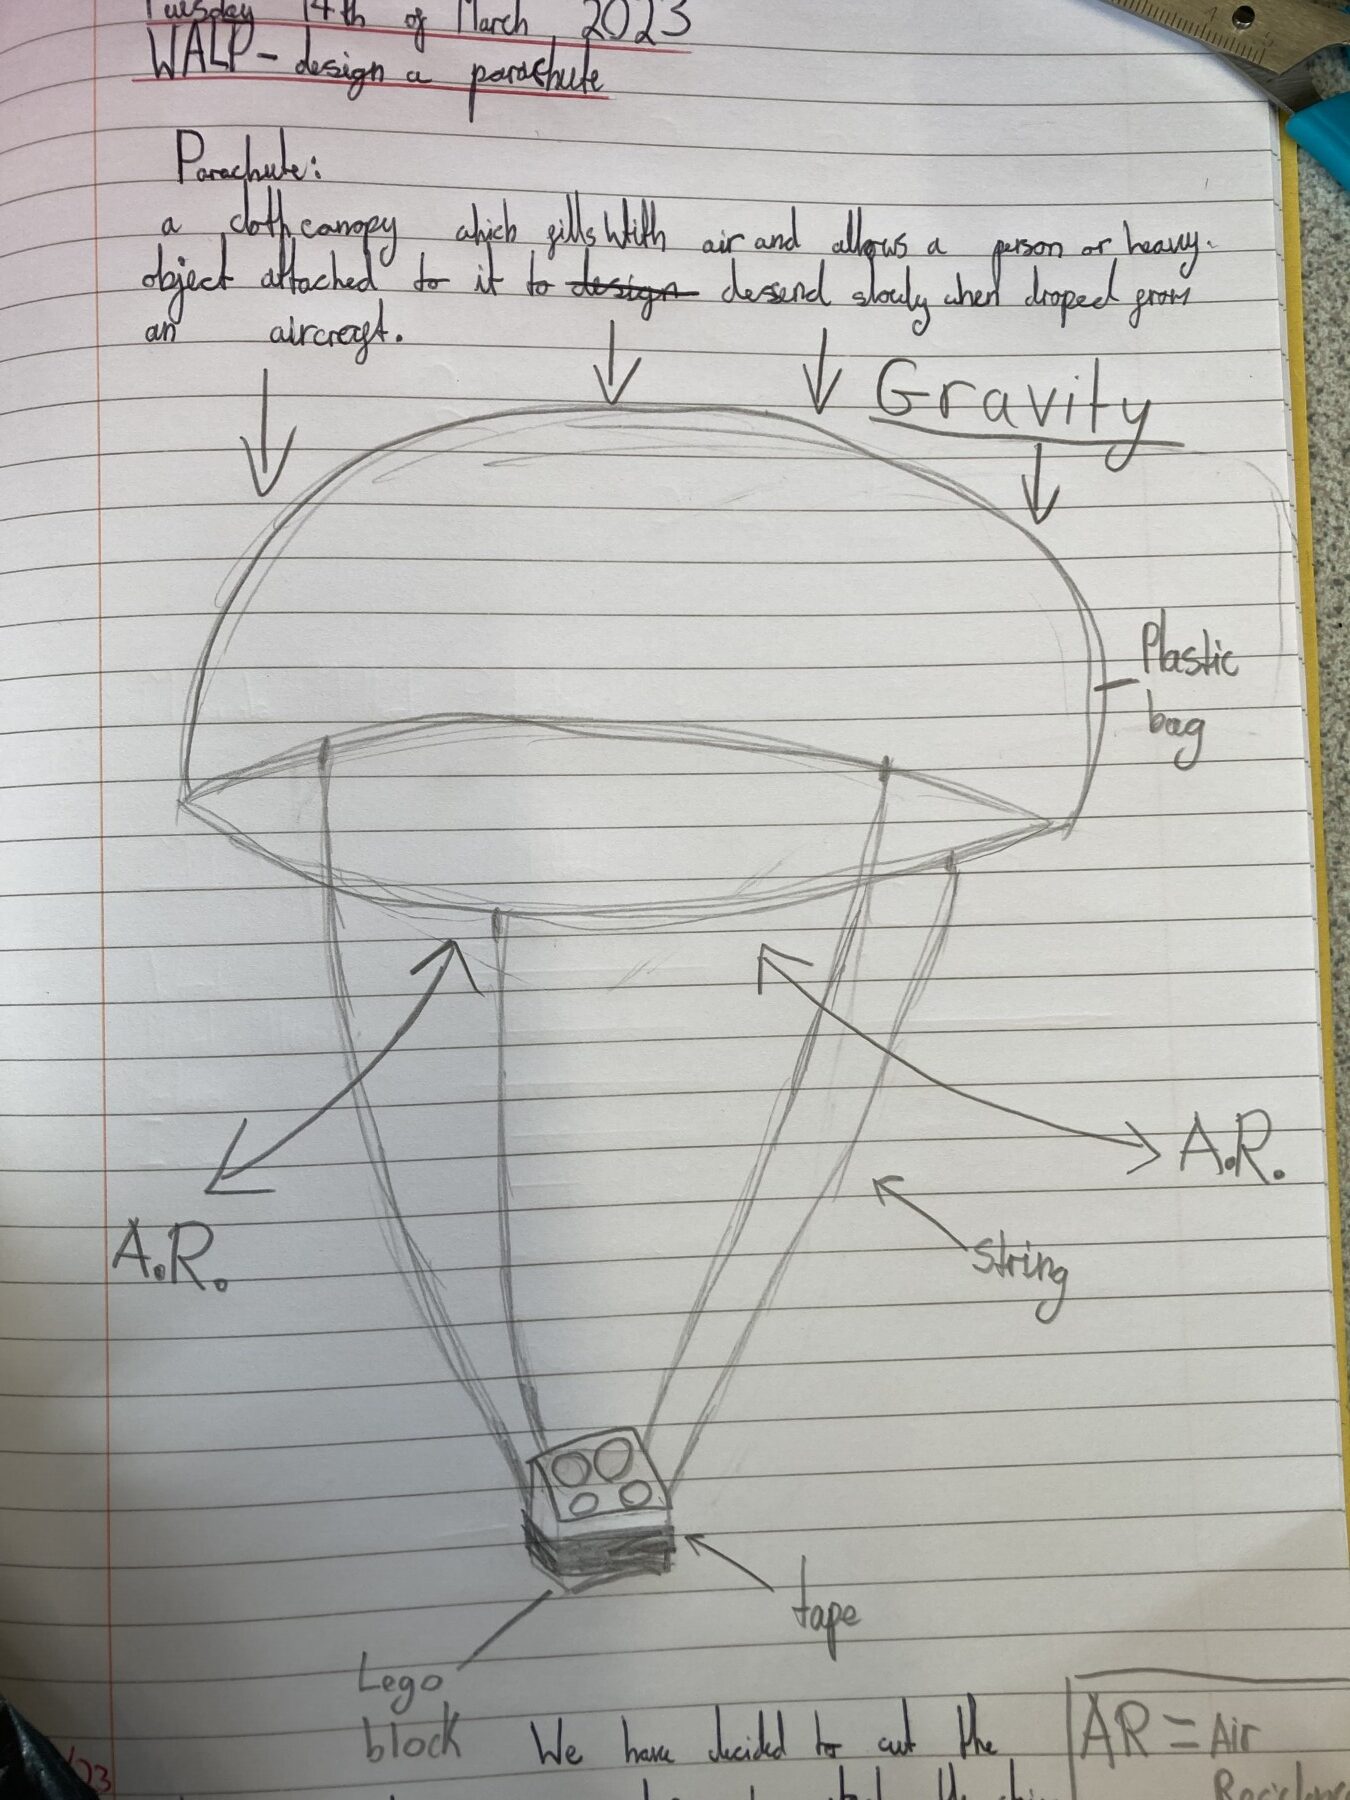 Tuesday 14th of March 2023
WALP - design a parachute
Parachute:
a cloth canopy which fills With air and allows a person or heavy.
object attached to it to design dessend slowly when droped from
an aircreft.
Gravity
Plastic
bag
A.R.
A.R.
string
tape
Lego
block
We have decided to cut the
AR = Air